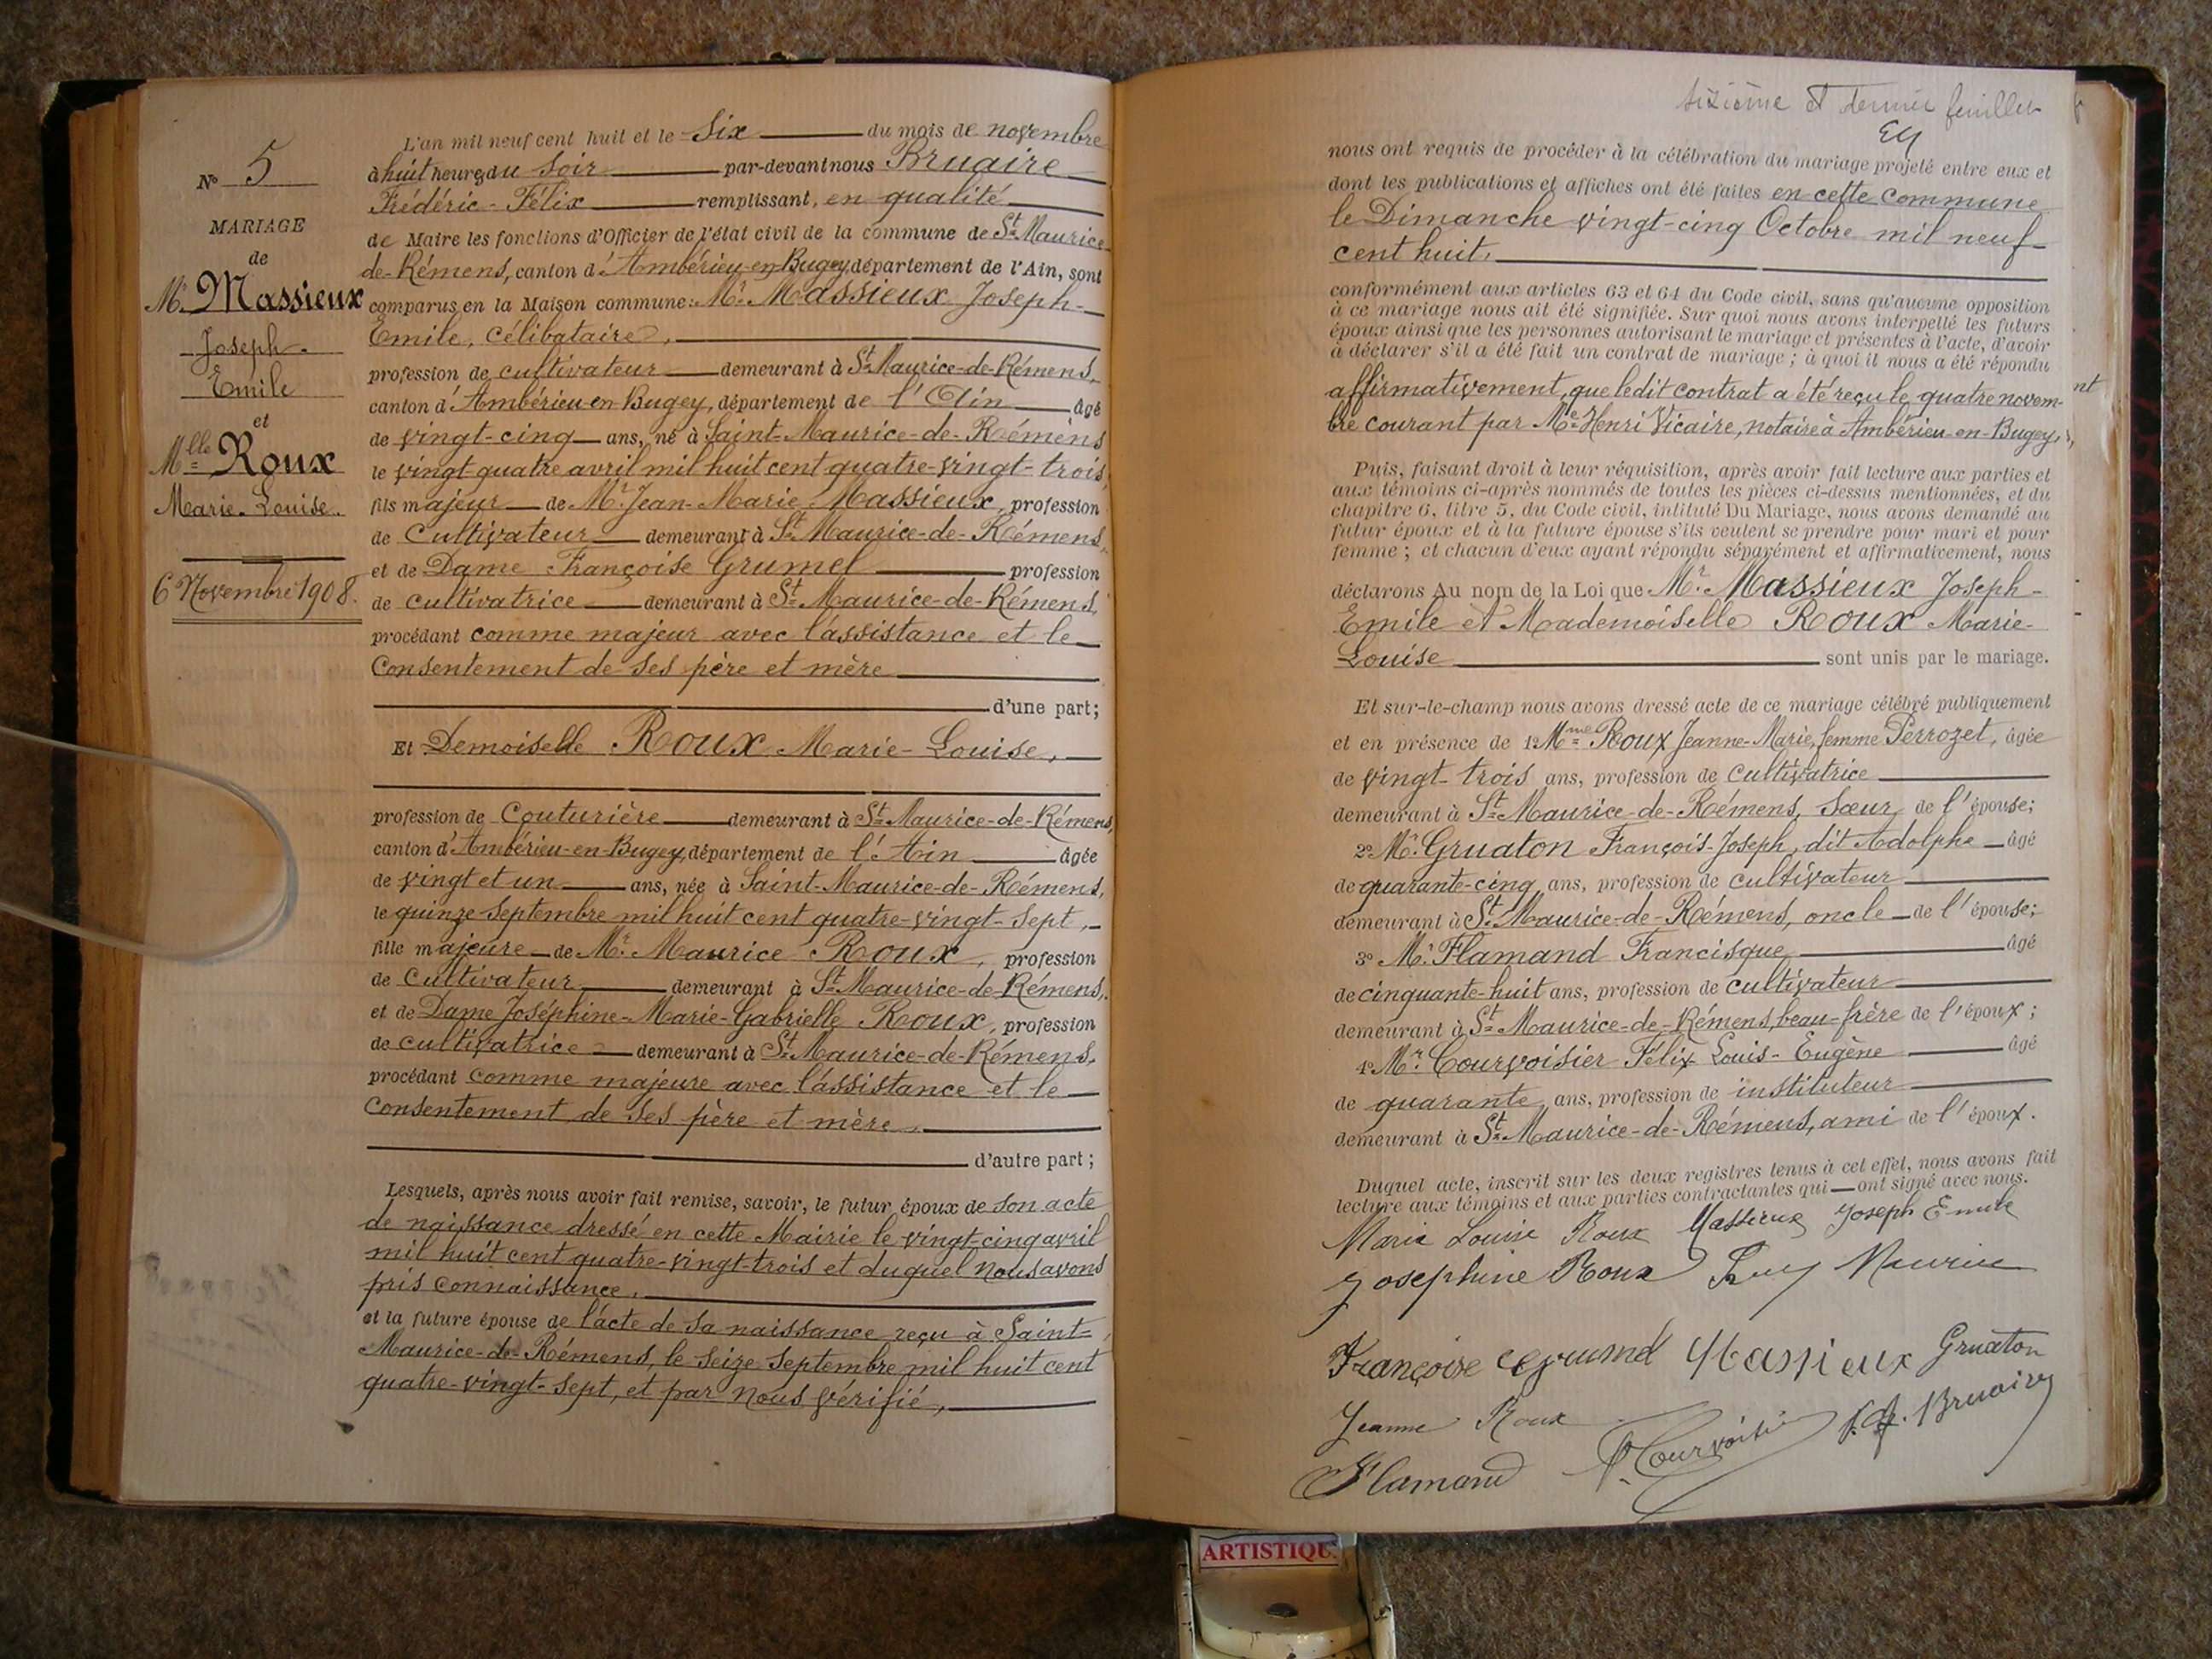 N° 5
MARIAGE
de
Mr. Massieux
Joseph-
Emile
et
Mlle Roux
Marie-Louise.
6 Novembre 1908.
L'an mil neuf cent huit et le six du mois de novembre
à huit heures du soir par-devant nous Bruaire
Frédéric-Félix remplissant, en qualité
de Maire les fonctions d'Officier de l'état civil de la commune de St Maurice-
de-Rémens, canton d'Ambérieu-en-Bugey, département de l'Ain, sont
comparus en la Maison commune: Mr. Massieux Joseph-
Emile, célibataire,
profession de cultivateur demeurant à St Maurice-de-Rémens,
canton d'Ambérieu-en-Bugey, département de l'Ain âgé
de vingt-cinq ans, né à Saint-Maurice-de-Rémens
le vingt quatre avril mil huit cent quatre-vingt-trois,
fils majeur de Mr Jean-Marie Massieux, profession
de Cultivateur demeurant à St Maurice-de-Rémens,
et de Dame Françoise Grumel profession
de cultivatrice demeurant à St Maurice-de-Rémens,
procédant comme majeur avec l'assistance et le
consentement de ses père et mère
d'une part;
Et Demoiselle Roux Marie-Louise,
profession de Couturière demeurant à St Maurice-de-Rémens,
canton d'Ambérieu-en-Bugey, département de l'Ain âgée
de vingt et un ans, née à Saint-Maurice-de-Rémens,
le quinze septembre mil huit cent quatre-vingt-sept,
fille majeure de Mr. Maurice Roux, profession
de Cultivateur demeurant à St Maurice-de-Rémens,
et de Dame Joséphine-Marie-Gabrielle Roux, profession
de cultivatrice demeurant à St Maurice-de-Rémens,
procédant comme majeure avec l'assistance et le
consentement de ses père et mère,
d'autre part;
Lesquels, après nous avoir fait remise, savoir, le futur époux de son acte
de naissance dressé en cette Mairie le vingt-cinq avril
mil huit cent quatre-vingt-trois et duquel nous avons
pris connaissance,
et la future épouse de l'acte de sa naissance reçu à Saint-
Maurice-de-Rémens, le seize septembre mil huit cent
quatre-vingt-sept, et par nous vérifié,
sixième et dernier feuillet
nous ont requis de procéder à la célébration du mariage projeté entre eux et
dont les publications et affiches ont été faites en cette commune
le Dimanche vingt-cinq Octobre mil neuf
cent huit.
conformément aux articles 63 et 64 du Code civil, sans qu'aucune opposition
à ce mariage nous ait été signifiée. Sur quoi nous avons interpellé les futurs
époux ainsi que les personnes autorisant le mariage et présentes à l'acte, d'avoir
à déclarer s'il a été fait un contrat de mariage; à quoi il nous a été répondu
affirmativement, que ledit contrat a été reçu le quatre novem-
bre courant par Me Henri Vicaire, notaire à Ambérieu-en-Bugey,
Puis, faisant droit à leur réquisition, après avoir fait lecture aux parties et
aux témoins ci-après nommés de toutes les pièces ci-dessus mentionnées, et du
chapitre 6, titre 5, du Code civil, intitulé Du Mariage, nous avons demandé au
futur époux et à la future épouse s'ils veulent se prendre pour mari et pour
femme; et chacun d'eux ayant répondu séparément et affirmativement, nous
déclarons Au nom de la Loi que Mr. Massieux Joseph-
Emile et Mademoiselle Roux Marie-
Louise sont unis par le mariage.
Et sur-le-champ nous avons dressé acte de ce mariage célébré publiquement
et en présence de 1° Mme Roux Jeanne-Marie, femme Perrozet, âgée
de vingt-trois ans, profession de cultivatrice
demeurant à St Maurice-de-Rémens, sœur de l'épouse;
2° Mr. Gruaton François-Joseph, dit Adolphe âgé
de quarante-cinq ans, profession de cultivateur
demeurant à St Maurice-de-Rémens, oncle de l'épouse;
3° Mr. Flamand Francisque, âgé
de cinquante-huit ans, profession de cultivateur
demeurant à St Maurice-de-Rémens, beau-frère de l'époux;
4° Mr. Courvoisier Félix Louis-Eugène âgé
de quarante ans, profession de instituteur
demeurant à St Maurice-de-Rémens, ami de l'époux.
Duquel acte, inscrit sur les deux registres tenus à cet effet, nous avons fait
lecture aux témoins et aux parties contractantes qui ont signé avec nous.
Marie Louise Roux Massieux Joseph Emile
Josephine Roux Roux Maurice
Françoise Grumel Massieux Gruaton
Jeanne Roux F. Courvoisier f.f. Bruaire
Flamand
ARTISTIQU